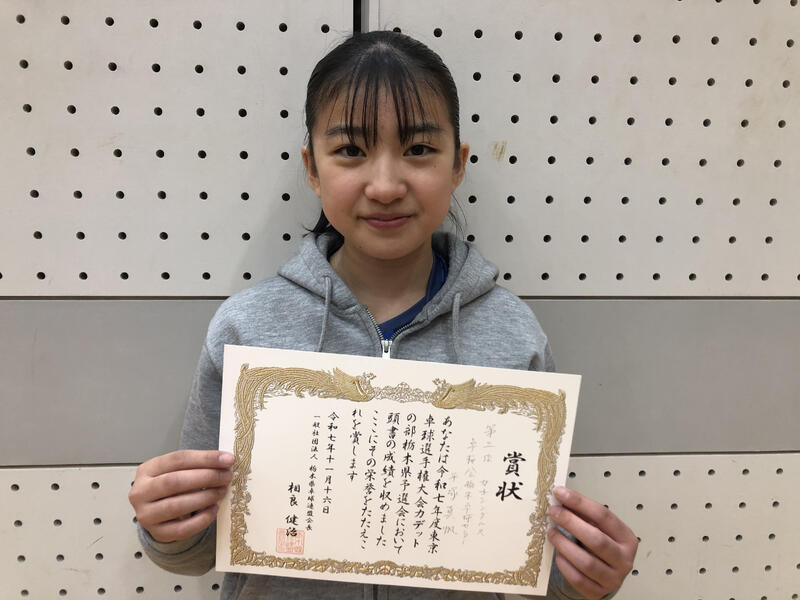 賞状
第二位 カデトシングルス
卓桜会栃木卓球センター
平塚
あなたは令和七年度東京
卓球選手権大会カデット
の部栃木県予選会において
頭書の成績を収めました
ここにその栄誉をたたえこ
れを賞します
令和七年十一月十六日
一般社団法人 栃木県卓球連盟会長
相良 健治